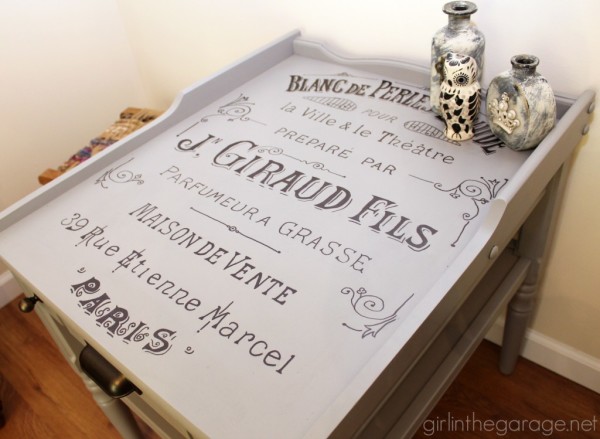 BLANC DE PERLE
POUR
la Ville & le Théâtre
PREPARÉ PAR
JN GIRAUD FILS
PARFUMEUR A GRASSE
MAISON DE VENTE
39 Rue Etienne Marcel
PARIS
girlinthegarage.net